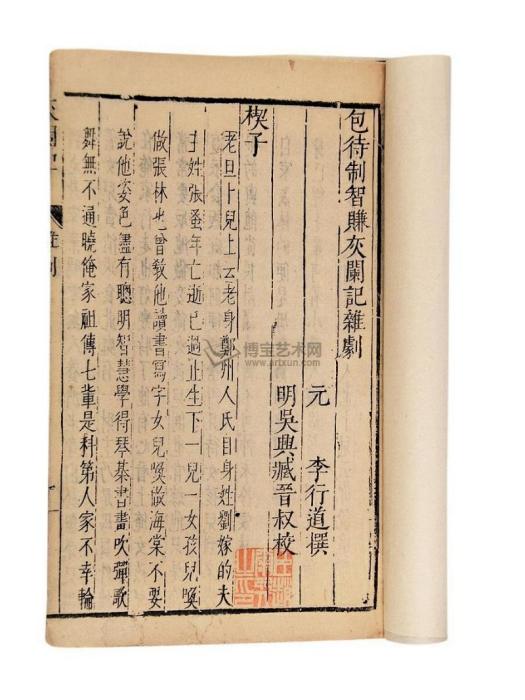 包待制智賺灰闌記雜劇
元 李行道撰
明吳興臧晉叔校
楔子
老旦卜兒上云老身鄭州人氏自身姓劉嫁的夫
主姓張蚤年亡逝已過止生下一兒一女孩兒喚
做張林也曾敎他讀書寫字女兒喚做海棠不要
說他姿色儘有聰明智慧學得琴棊書畫吹彈歌
舞無不通曉俺家祖傳七輩是科第人家不幸輪
博宝艺术网
www.artxun.com